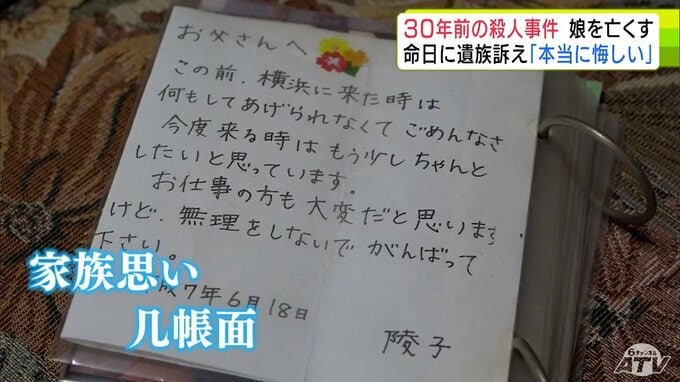 30年前の殺人事件 娘を亡くす
命日に遺族訴え「本当に悔しい」
お父さんへ
この前、横浜に来た時は
何もしてあげられなくて ごめんなさ
今度来る時は もう少し ちゃんと
したいと思っています。
お仕事の方も 大変だと思います
けど、無理をしないで がんばって
下さい。
7年6月18日
陵子
家族思い
几帳面
6チャンネル
ATV